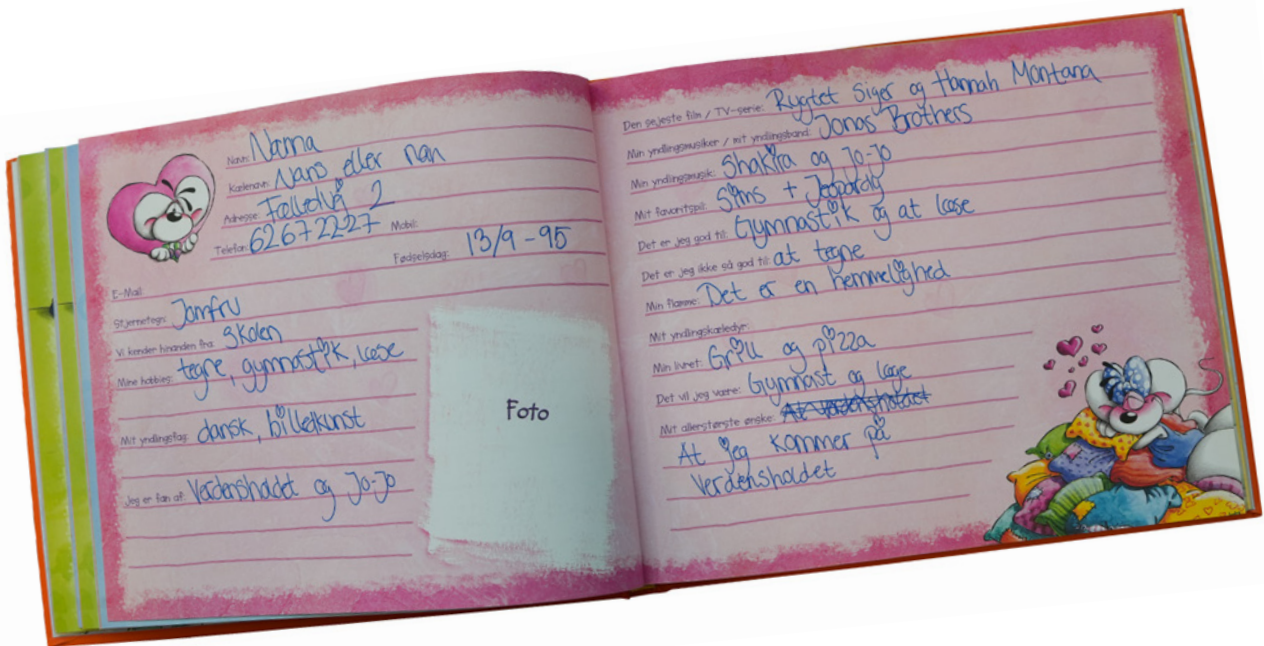 Navn: Nanna
Kælenavn: Nans eller nan
Adresse: Fælledvej 2
Telefon: 62672227 Mobil:
Fødselsdag: 13/9-95
E-Mail:
Stjernetegn: Jomfru
Vi kender hinanden fra: Skolen
Mine hobbies: tegne, gymnastik, læse
Mit yndlingsfag: dansk, billedkunst
Jeg er fan af: Verdensholdet og Jo-Jo
Foto
Den sejeste film / TV-serie: Rygtet siger og Hannah Montana
Min yndlingsmusiker / mit yndlingsband: Jonas Brothers
Min yndlingsmusik: Shakira og Jo-Jo
Mit favoritspil: Sims + Jeopardy
Det er jeg god til: Gymnastik og at læse
Det er jeg ikke så god til: at tegne
Min flamme: Det er en hemmelighed
Mit yndlingskæledyr:
Min livret: Grill og pizza
Det vil jeg være: Gymnast og læge
Mit allerstørste ønske:
At jeg kommer på
Verdensholdet